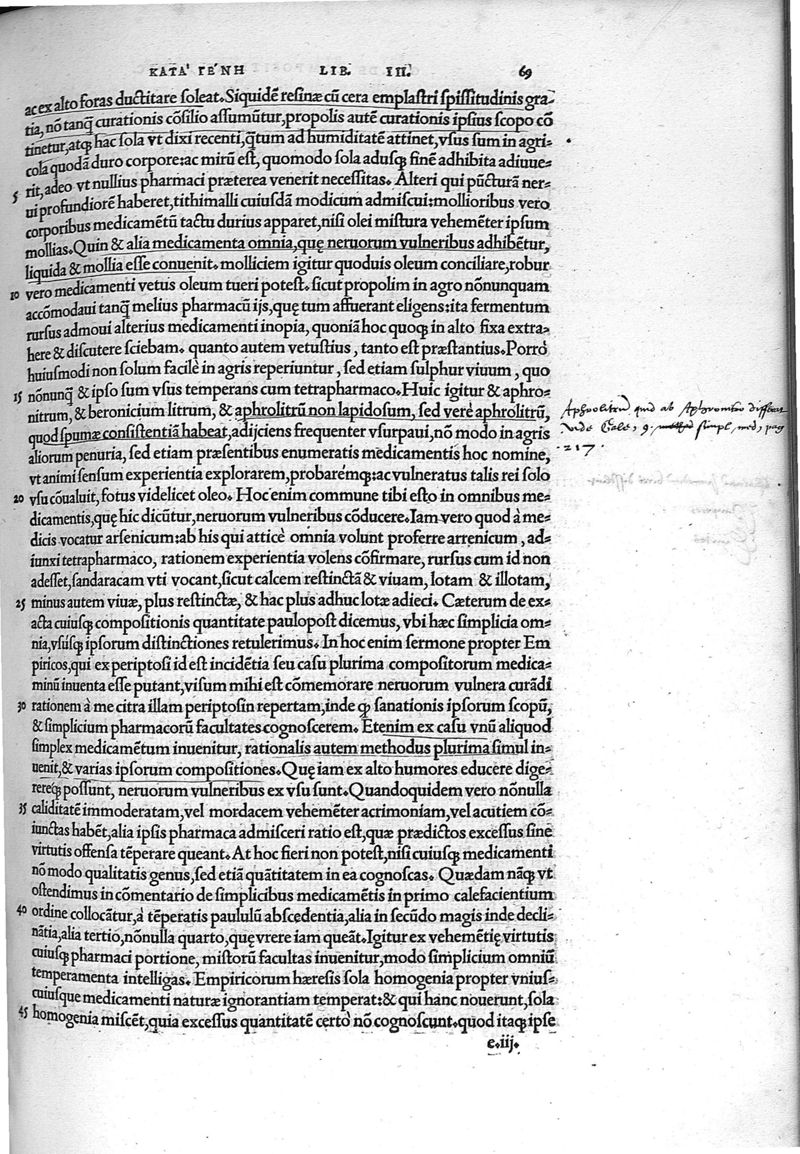 ΚΑΤΑ' ΓΕ'ΝΗ LIB. III. 69
ac ex alto foras ductitare soleat. Siquidē resinæ cū cera emplastri spissitudinis gra-
tia, nō tanq̄ curationis cōsilio assumūtur, propolis autē curationis ipsius scopo cō
tinetur, atq; hac sola vt dixi recenti, q̄tum ad humiditatē attinet, vsus sum in agri-
cola quodā duro corpore: ac mirū est, quomodo sola adusq; finē adhibita adiuue-
5 rit, adeo vt nullius pharmaci præterea venerit necessitas. Alteri qui pūcturā ner-
ui profundiorē haberet, tithimalli cuiusdā modicum admiscui: mollioribus vero
corporibus medicamētū tactu durius apparet, nisi olei mistura vehemēter ipsum
mollias. Quin & alia medicamenta omnia, quę neruorum vulneribus adhibētur,
liquida & mollia esse conuenit. molliciem igitur quoduis oleum conciliare, robur
10 vero medicamenti vetus oleum tueri potest. sicut propolim in agro nōnunquam
accōmodaui tanq̄ melius pharmacū ijs, quę tum affuerant eligens: ita fermentum
rursus admoui alterius medicamenti inopia, quoniā hoc quoq; in alto fixa extra-
here & discutere sciebam. quanto autem vetustius, tanto est præstantius. Porrò
huiusmodi non solum facilè in agris reperiuntur, sed etiam sulphur viuum, quo
15 nōnunq̄ & ipso sum vsus temperans cum tetrapharmaco. Huic igitur & aphro-
nitrum, & beronicium litrum, & aphrolitrū non lapidosum, sed verè aphrolitrū,
quod spumæ consistentiā habeat, adijciens frequenter vsurpaui, nō modo in agris
aliorum penuria, sed etiam præsentibus enumeratis medicamentis hoc nomine,
vt animi sensum experientia explorarem, probaremq́;: ac vulneratus talis rei solo
20 vsu cōualuit, fotus videlicet oleo. Hoc enim commune tibi esto in omnibus me-
dicamentis, quę hic dicūtur, neruorum vulneribus cōducere. Iam vero quod à me-
dicis vocatur arsenicum: ab his qui atticè omnia volunt proferre arrenicum, ad-
iunxi tetrapharmaco, rationem experientia volens cōfirmare, rursus cum id non
adesset, sandaracam vti vocant, sicut calcem restinctā & viuam, lotam & illotam,
25 minus autem viuæ, plus restinctæ, & hac plus adhuc lotæ adieci. Cæterum de ex-
acta cuiusq; compositionis quantitate paulopost dicemus, vbi hæc simplicia om-
nia, vsusq; ipsorum distinctiones retulerimus. In hoc enim sermone propter Em
piricos, qui ex periptosi id est incidētia seu casu plurima compositorum medica-
minū inuenta esse putant, visum mihi est cōmemorare neruorum vulnera curādi
30 rationem à me citra illam periptosin repertam, inde q̄ sanationis ipsorum scopū,
& simplicium pharmacorū facultates cognoscerem. Etenim ex casu vnū aliquod
simplex medicamētum inuenitur, rationalis autem methodus plurima simul in-
uenit, & varias ipsorum compositiones. Quę iam ex alto humores educere dige-
rereq; possunt, neruorum vulneribus ex vsu sunt. Quandoquidem vero nōnulla
35 caliditatē immoderatam, vel mordacem vehemēter acrimoniam, vel acutiem cō-
iunctas habēt, alia ipsis pharmaca admisceri ratio est, quæ prædictos excessus sine
virtutis offensa tēperare queant. At hoc fieri non potest, nisi cuiusq; medicamenti
nō modo qualitatis genus, sed etiā quātitatem in ea cognoscas. Quædam nāq; vt
ostendimus in cōmentario de simplicibus medicamētis in primo calefacientium
40 ordine collocātur, à tēperatis paululū abscedentia, alia in secūdo magis inde decli-
nātia, alia tertio, nōnulla quarto, quę vrere iam queāt. Igitur ex vehemētię virtutis
cuiusq; pharmaci portione, mistorū facultas inuenitur, modo simplicium omniū
temperamenta intelligas. Empiricorum hæresis sola homogenia propter vnius-
cuiusque medicamenti naturæ ignorantiam temperat: & qui hanc nouerunt, sola
45 homogenia miscēt, quia excessus quantitatē certò nō cognoscunt. quod itaq; ipse
e. iij.
Aphrolitrū quid ab Aphronitro differat
vide Gale, 9. simpl, med, pag
217.